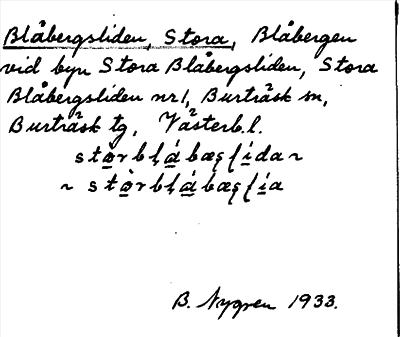 Blåbergsliden, Stora, Blåbergen
vid byn Stora Blåbergsliden, Stora
Blåbergsliden nr 1, Burträsk sn,
Burträsk tg, Västerb. l.
B. Nygren 1933.